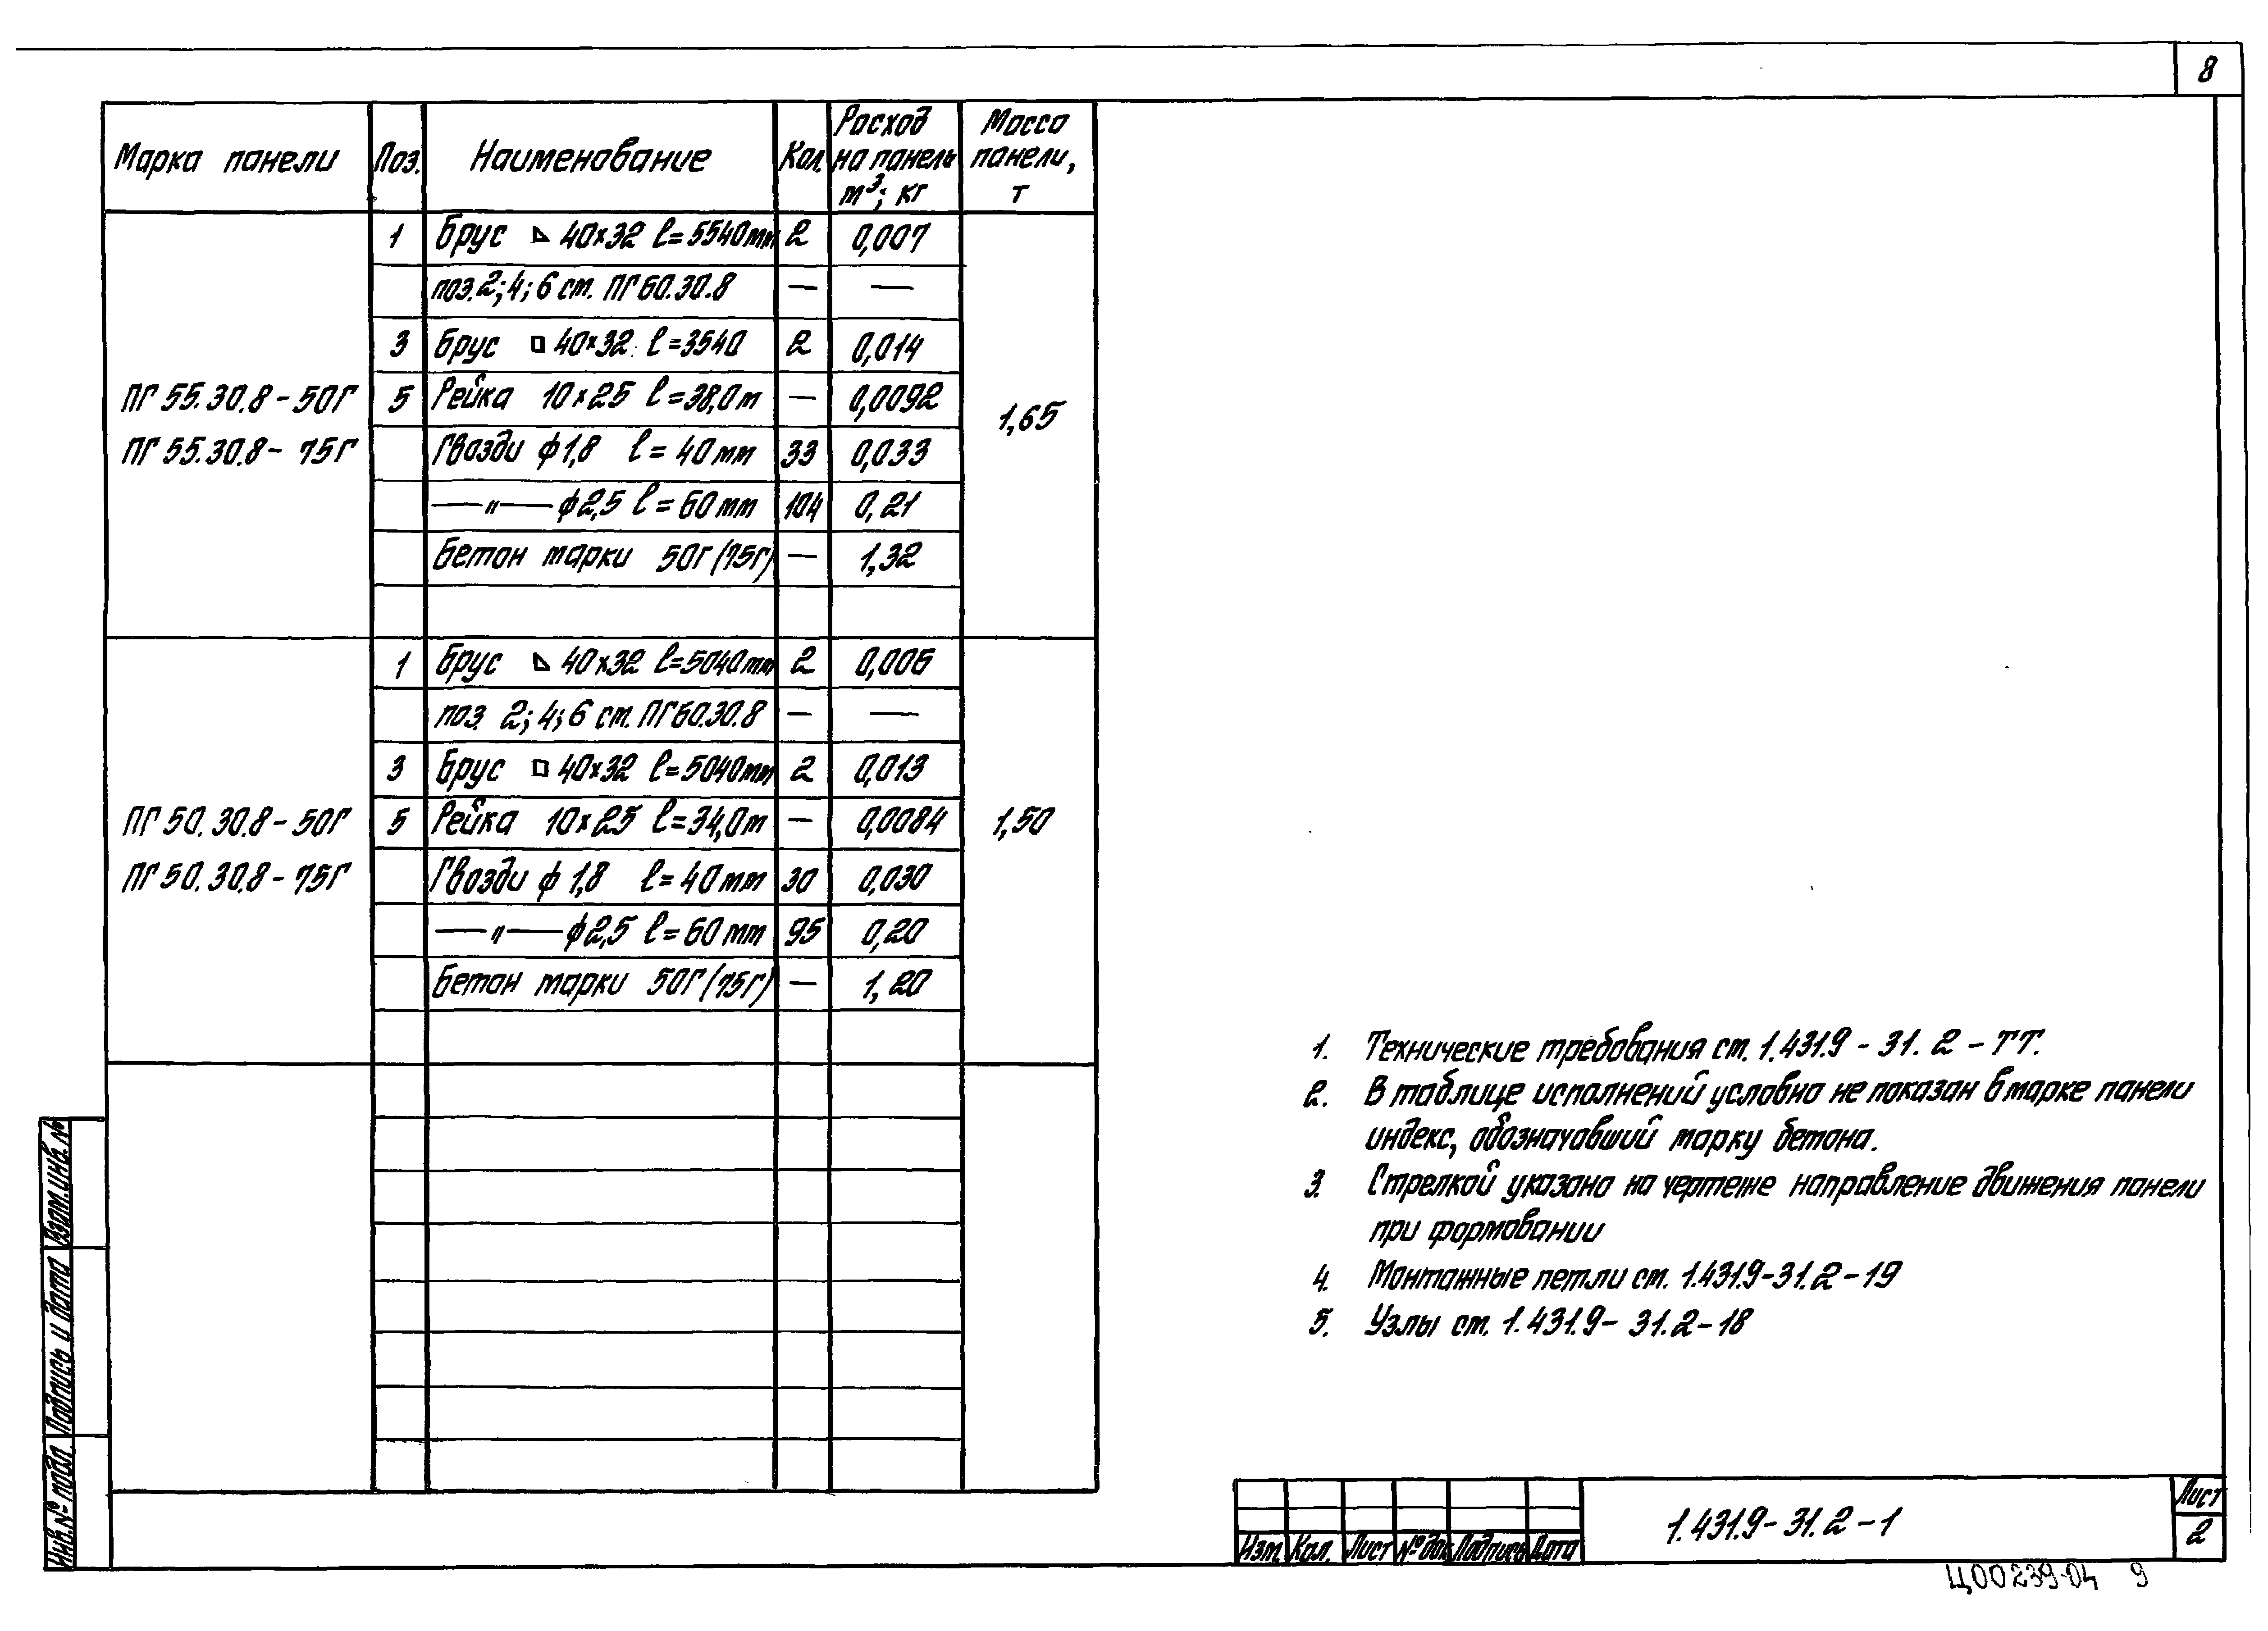 8
Марка панели | Поз. | Наименование | Кол. | Расход на панель м³; кг | Масса панели, т
ПГ 55.30.8-50Г
ПГ 55.30.8-75Г
1 | Брус ⊿ 40×32 ℓ=5540мм | 2 | 0,007
поз. 2; 4; 6 см. ПГ60.30.8 | — | —
3 | Брус □ 40×32 ℓ=3540 | 2 | 0,014
5 | Рейка 10×25 ℓ=38,0м | — | 0,0092
Гвозди ф1,8 ℓ=40мм | 33 | 0,033
—"— ф2,5 ℓ=60мм | 104 | 0,21
Бетон марки 50Г(75Г) | — | 1,32
1,65
ПГ 50.30.8-50Г
ПГ 50.30.8-75Г
1 | Брус ⊿ 40×32 ℓ=5040мм | 2 | 0,006
поз. 2; 4; 6 см. ПГ60.30.8 | — | —
3 | Брус □ 40×32 ℓ=5040мм | 2 | 0,013
5 | Рейка 10×25 ℓ=34,0м | — | 0,0084
Гвозди ф1,8 ℓ=40мм | 30 | 0,030
—"— ф2,5 ℓ=60мм | 95 | 0,20
Бетон марки 50Г(75Г) | — | 1,20
1,50
1. Технические требования см. 1.431.9-31.2-ТТ.
2. В таблице исполнений условно не показан в марке панели
индекс, обозначавший марку бетона.
3. Стрелкой указано на чертеже направление движения панели
при формовании
4. Монтажные петли см. 1.431.9-31.2-19
5. Узлы см. 1.431.9-31.2-18
Взам.инв.№
Подпись и дата
Инв.№ подл
Изм. Кол. Лист №док Подпись Дата
1.431.9-31.2-1
Лист
2
Ц00239-04 9